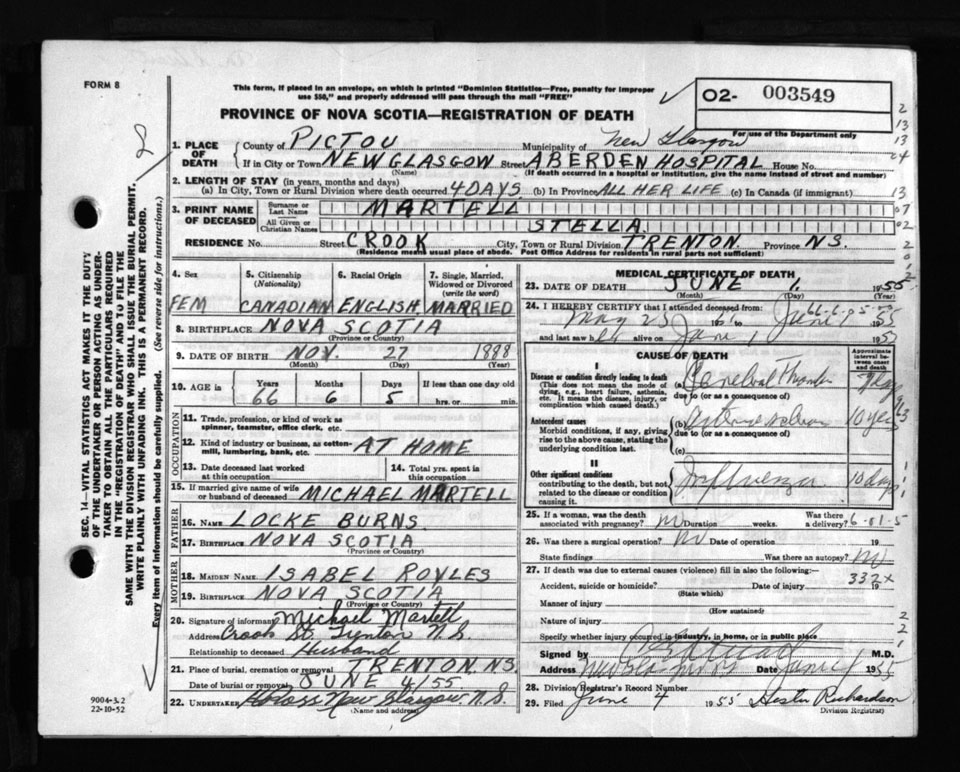 FORM 8
This form, if placed in an envelope, on which is printed "Dominion Statistics—Free, penalty for improper
use $50," and properly addressed will pass through the mail "FREE"
PROVINCE OF NOVA SCOTIA—REGISTRATION OF DEATH
02- 003549
For use of the Department only
1. PLACE OF DEATH County of PICTOU Municipality of New Glasgow
If in City or Town NEW GLASGOW Street ABERDEN HOSPITAL House No.
(Name) (If death occurred in a hospital or institution, give the name instead of street and number)
2. LENGTH OF STAY (in years, months and days)
(a) In City, Town or Rural Division where death occurred 4 DAYS (b) In Province ALL HER LIFE (c) In Canada (if immigrant)
3. PRINT NAME OF DECEASED Surname or Last Name MARTELL
All Given or Christian Names STELLA
RESIDENCE No. Street CROOK City, Town or Rural Division TRENTON Province N.S.
(Residence means usual place of abode. Post Office Address for residents in rural parts not sufficient)
4. Sex 5. Citizenship (Nationality) 6. Racial Origin 7. Single, Married, Widowed or Divorced (write the word)
FEM CANADIAN ENGLISH MARRIED
8. BIRTHPLACE NOVA SCOTIA
(Province or Country)
9. DATE OF BIRTH NOV. 27 1888
(Month) (Day) (Year)
10. AGE IN Years Months Days If less than one day old
66 6 5 hrs. or min.
OCCUPATION
11. Trade, profession, or kind of work as
spinner, teamster, office clerk, etc.
12. Kind of industry or business, as cotton-
mill, lumbering, bank, etc. AT HOME
13. Date deceased last worked
at this occupation
14. Total yrs. spent in
this occupation
15. If married give name of wife
or husband of deceased MICHAEL MARTELL
FATHER
16. NAME LOCKE BURNS
17. BIRTHPLACE NOVA SCOTIA
(Province or Country)
MOTHER
18. MAIDEN NAME ISABEL ROYLES
19. BIRTHPLACE NOVA SCOTIA
(Province or Country)
20. Signature of informant Michael Martell
Address Crook St. Trenton N.S.
Relationship to deceased Husband
21. Place of burial, cremation or removal TRENTON, N.S
Date of burial or removal JUNE 4/55
22. UNDERTAKER New Glasgow N.S.
(Name and address)
MEDICAL CERTIFICATE OF DEATH
23. DATE OF DEATH JUNE 1. 1955
(Month) (Day) (Year)
24. I HEREBY CERTIFY that I attended deceased from:
May 25 to June 1 1955
and last saw her alive on June 1 195
CAUSE OF DEATH
Approximate interval between onset and death
I
Disease or condition directly leading to death
(This does not mean the mode of dying, e.g., heart failure, asthenia, etc. It means the disease, injury, or complication which caused death.
(a) Cerebral
due to (or as a consequence of)
Antecedent causes
Morbid conditions, if any, giving rise to the above cause, stating the underlying condition last.
(b) 10 yrs
due to (or as a consequence of)
(c)
II
Other significant conditions
contributing to the death, but not related to the disease or condition causing it.
Influenza 10 days
25. If a woman, was the death
associated with pregnancy? no Duration weeks. Was there a delivery?
6-01-5
26. Was there a surgical operation? no Date of operation 19
State findings Was there an autopsy? no
27. If death was due to external causes (violence) fill in also the following:—
332X
Accident, suicide or homicide? Date of injury 19
(State which)
Manner of injury
(How sustained)
Nature of injury
Specify whether injury occurred in industry, in home, or in public place
Signed by M.D.
Address Date June 1 1955
28. Division Registrar's Record Number
29. Filed June 4 1955 Hester Richardson
Division Registrar)
SEC. 14—VITAL STATISTICS ACT MAKES IT THE DUTY,
OF THE UNDERTAKER OR PERSON ACTING AS UNDER-
TAKER TO OBTAIN ALL THE PARTICULARS REQUIRED
IN THE "REGISTRATION OF DEATH" AND TO FILE THE
SAME WITH THE DIVISION REGISTRAR WHO SHALL ISSUE THE BURIAL PERMIT.
WRITE PLAINLY WITH UNFADING INK. THIS IS A PERMANENT RECORD.
Every item of information should be carefully supplied. (See reverse side for instructions.)
9004-3.2
22-10-52